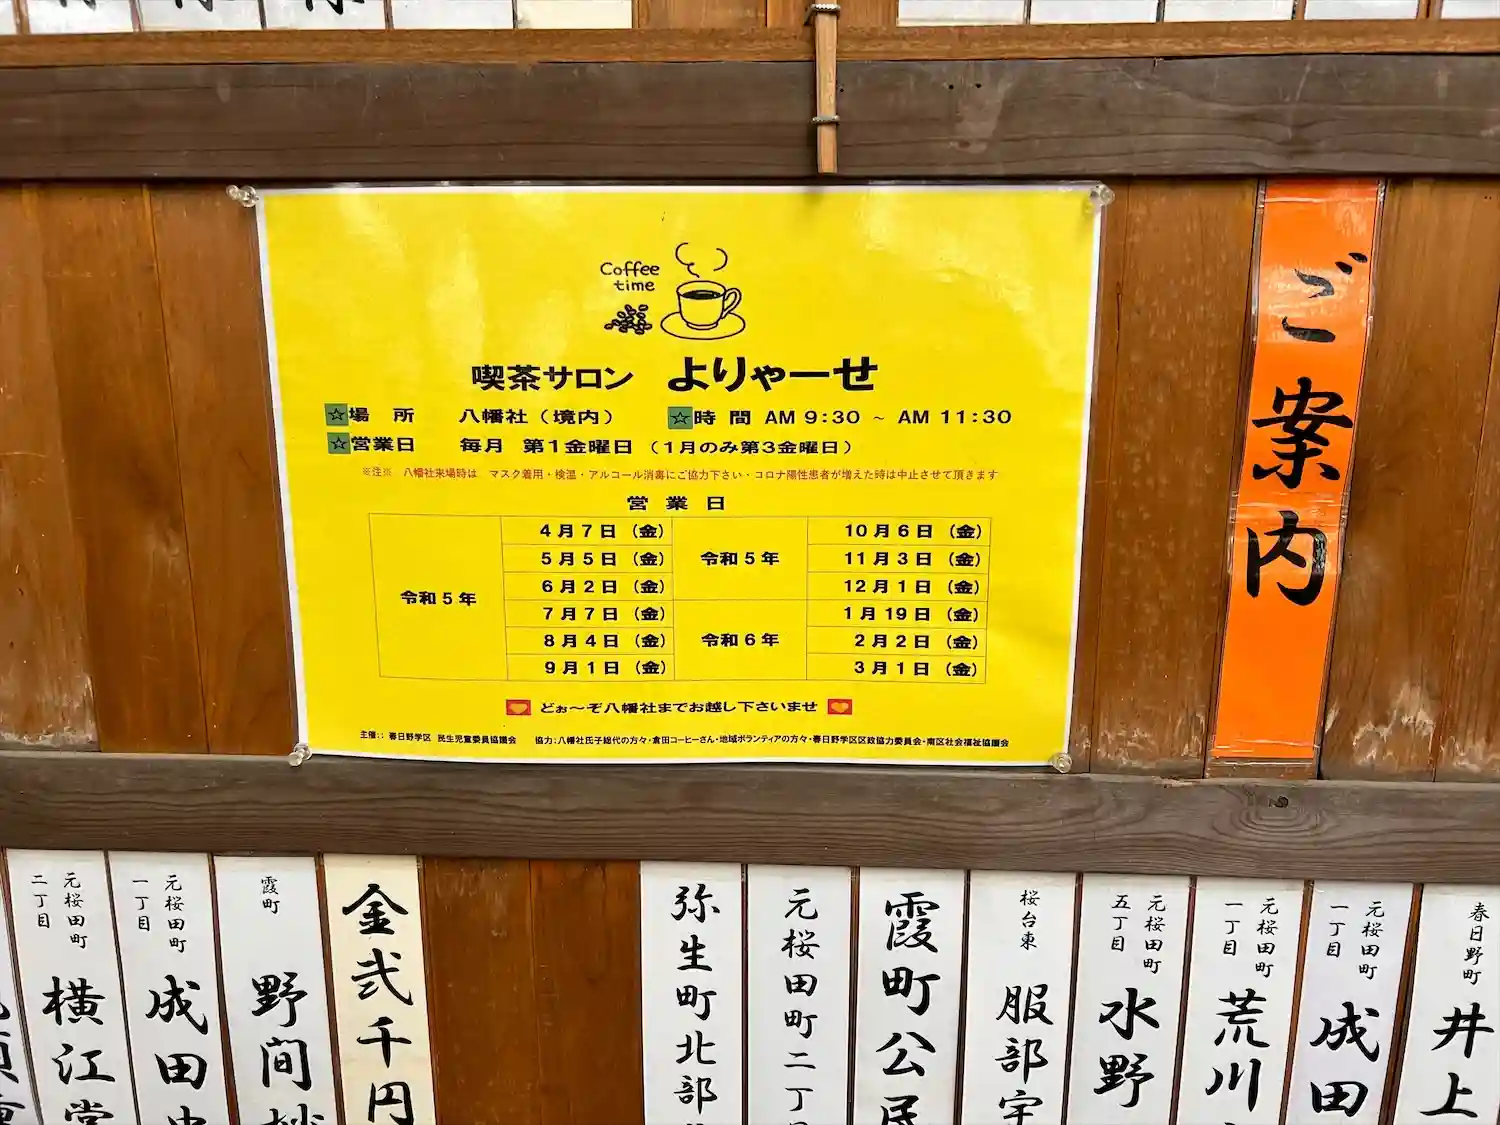 Coffee
time
喫茶サロン よりゃーせ
☆場 所 八幡社（境内） ☆時 間 AM 9:30 ~ AM 11:30
☆営業日 毎月 第1金曜日（1月のみ第3金曜日）
※注※ 八幡社来場時は マスク着用・検温・アルコール消毒にご協力下さい・コロナ陽性患者が増えた時は中止させて頂きます
営 業 日
令和5年
4月7日（金）
5月5日（金）
6月2日（金）
7月7日（金）
8月4日（金）
9月1日（金）
令和5年
10月6日（金）
11月3日（金）
12月1日（金）
令和6年
1月19日（金）
2月2日（金）
3月1日（金）
どぉ～ぞ八幡社までお越し下さいませ
主催：：春日野学区 民生児童委員協議会 協力：八幡社氏子総代の方々・倉田コーヒーさん・地域ボランティアの方々・春日野学区区政協力委員会・南区社会福祉協議会
ご案内
春日野町
井上
元桜田町
一丁目
成田
元桜田町
一丁目
荒川
元桜田町
五丁目
水野
桜台東
服部宇
霞町公民
元桜田町二丁目
弥生町北部
金弐千円
霞町
野間
元桜田町
一丁目
成田
元桜田町
二丁目
横江